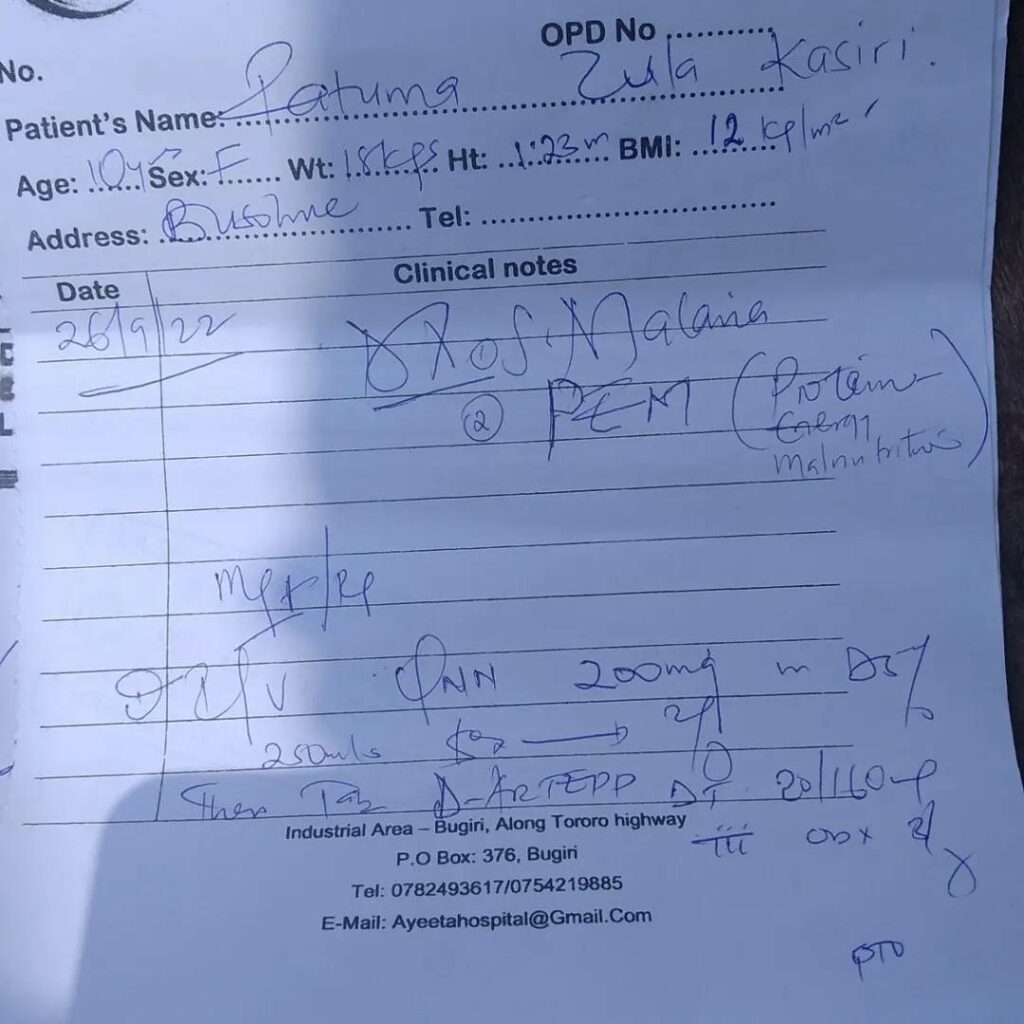 OPD No ............
No.
Patient's Name: Fatuma Zula Kasiri.
Age: 10yrs Sex: F Wt: 18kgs Ht: 1.23m BMI: 12 kg/m²
Address: Busohwe Tel: ............
Date Clinical notes
26/9/22 DX ① of Malaria
② PEM (Protein-
Energy
Malnutrition)
Mgt/Rx
① I/V QNN 200mg in D5%
250mls → 2/7
Then Tab D-ARTEPP DT 20/160mg
Industrial Area – Bugiri, Along Tororo highway
iii OD x
P.O Box: 376, Bugiri
Tel: 0782493617/0754219885
E-Mail: Ayeetahospital@Gmail.Com
PTO